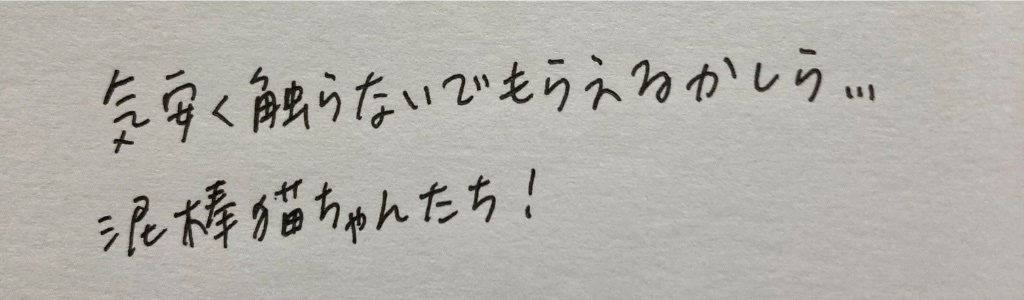 気安く触らないでもらえるかしら...
泥棒猫ちゃんたち!